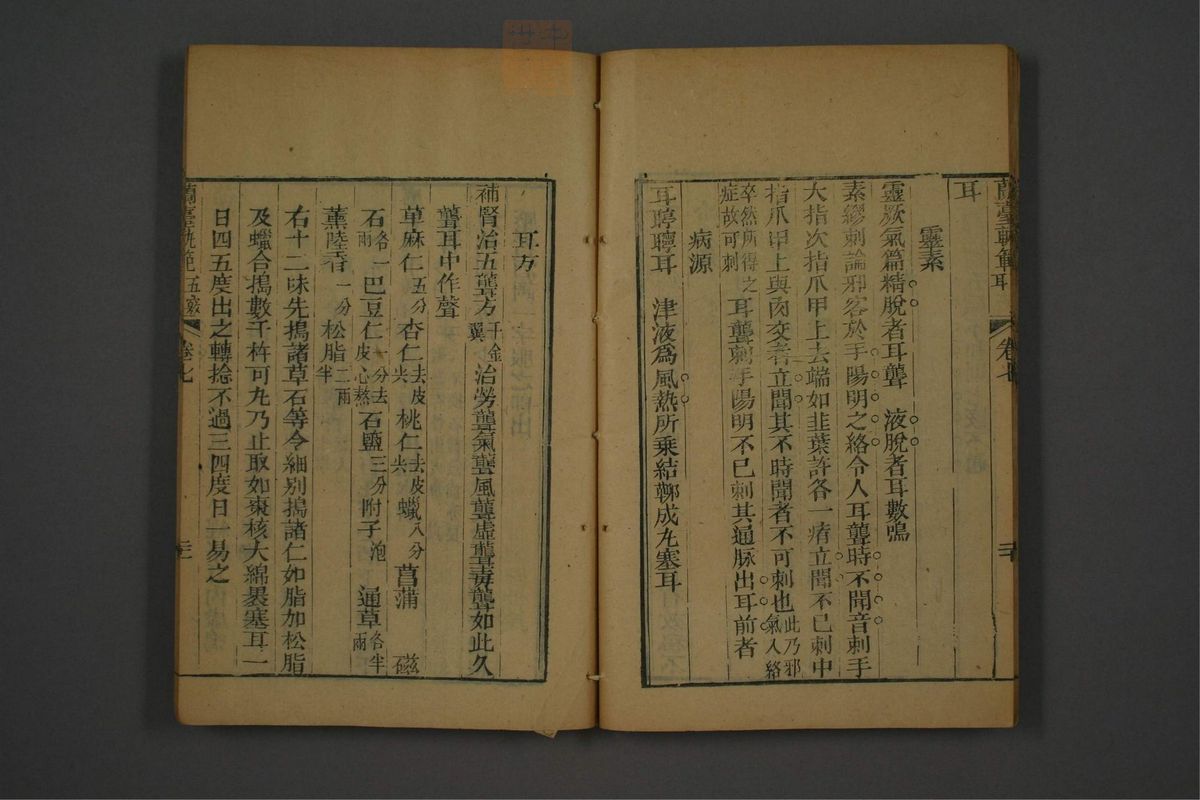 蘭臺軌範 耳 卷七
耳
靈素
靈厥氣篇精脫者耳聾 液脫者耳數鳴
素繆刺論邪客於手陽明之絡令人耳聾時不聞音刺手
大指次指爪甲上去端如韭葉許各一痏立聞不已刺中
指爪甲上與肉交者立聞其不時聞者不可刺也此乃邪氣入絡
卒然所得之症故可刺 耳聾刺手陽明不已刺其通脉出耳前者
病源
耳聤聹耳 津液爲風熱所乘結鞕成丸塞耳
耳方
補腎治五聾方千金翼 治勞聾氣聾風聾虛聾毒聾如此久
聾耳中作聲
草麻仁五分 杏仁去皮尖 桃仁去皮尖 蠟八分 菖蒲 磁
石各一兩 巴豆仁一分去皮心熬 石鹽三分 附子泡 通草各半兩
薰陸香一分 松脂二兩半
右十二味先搗諸草石等令細别搗諸仁如脂加松脂
及蠟合搗數千杵可丸乃止取如棗核大綿裹塞耳一
日四五度出之轉捻不過三四度日一易之
蘭臺軌範 卷七